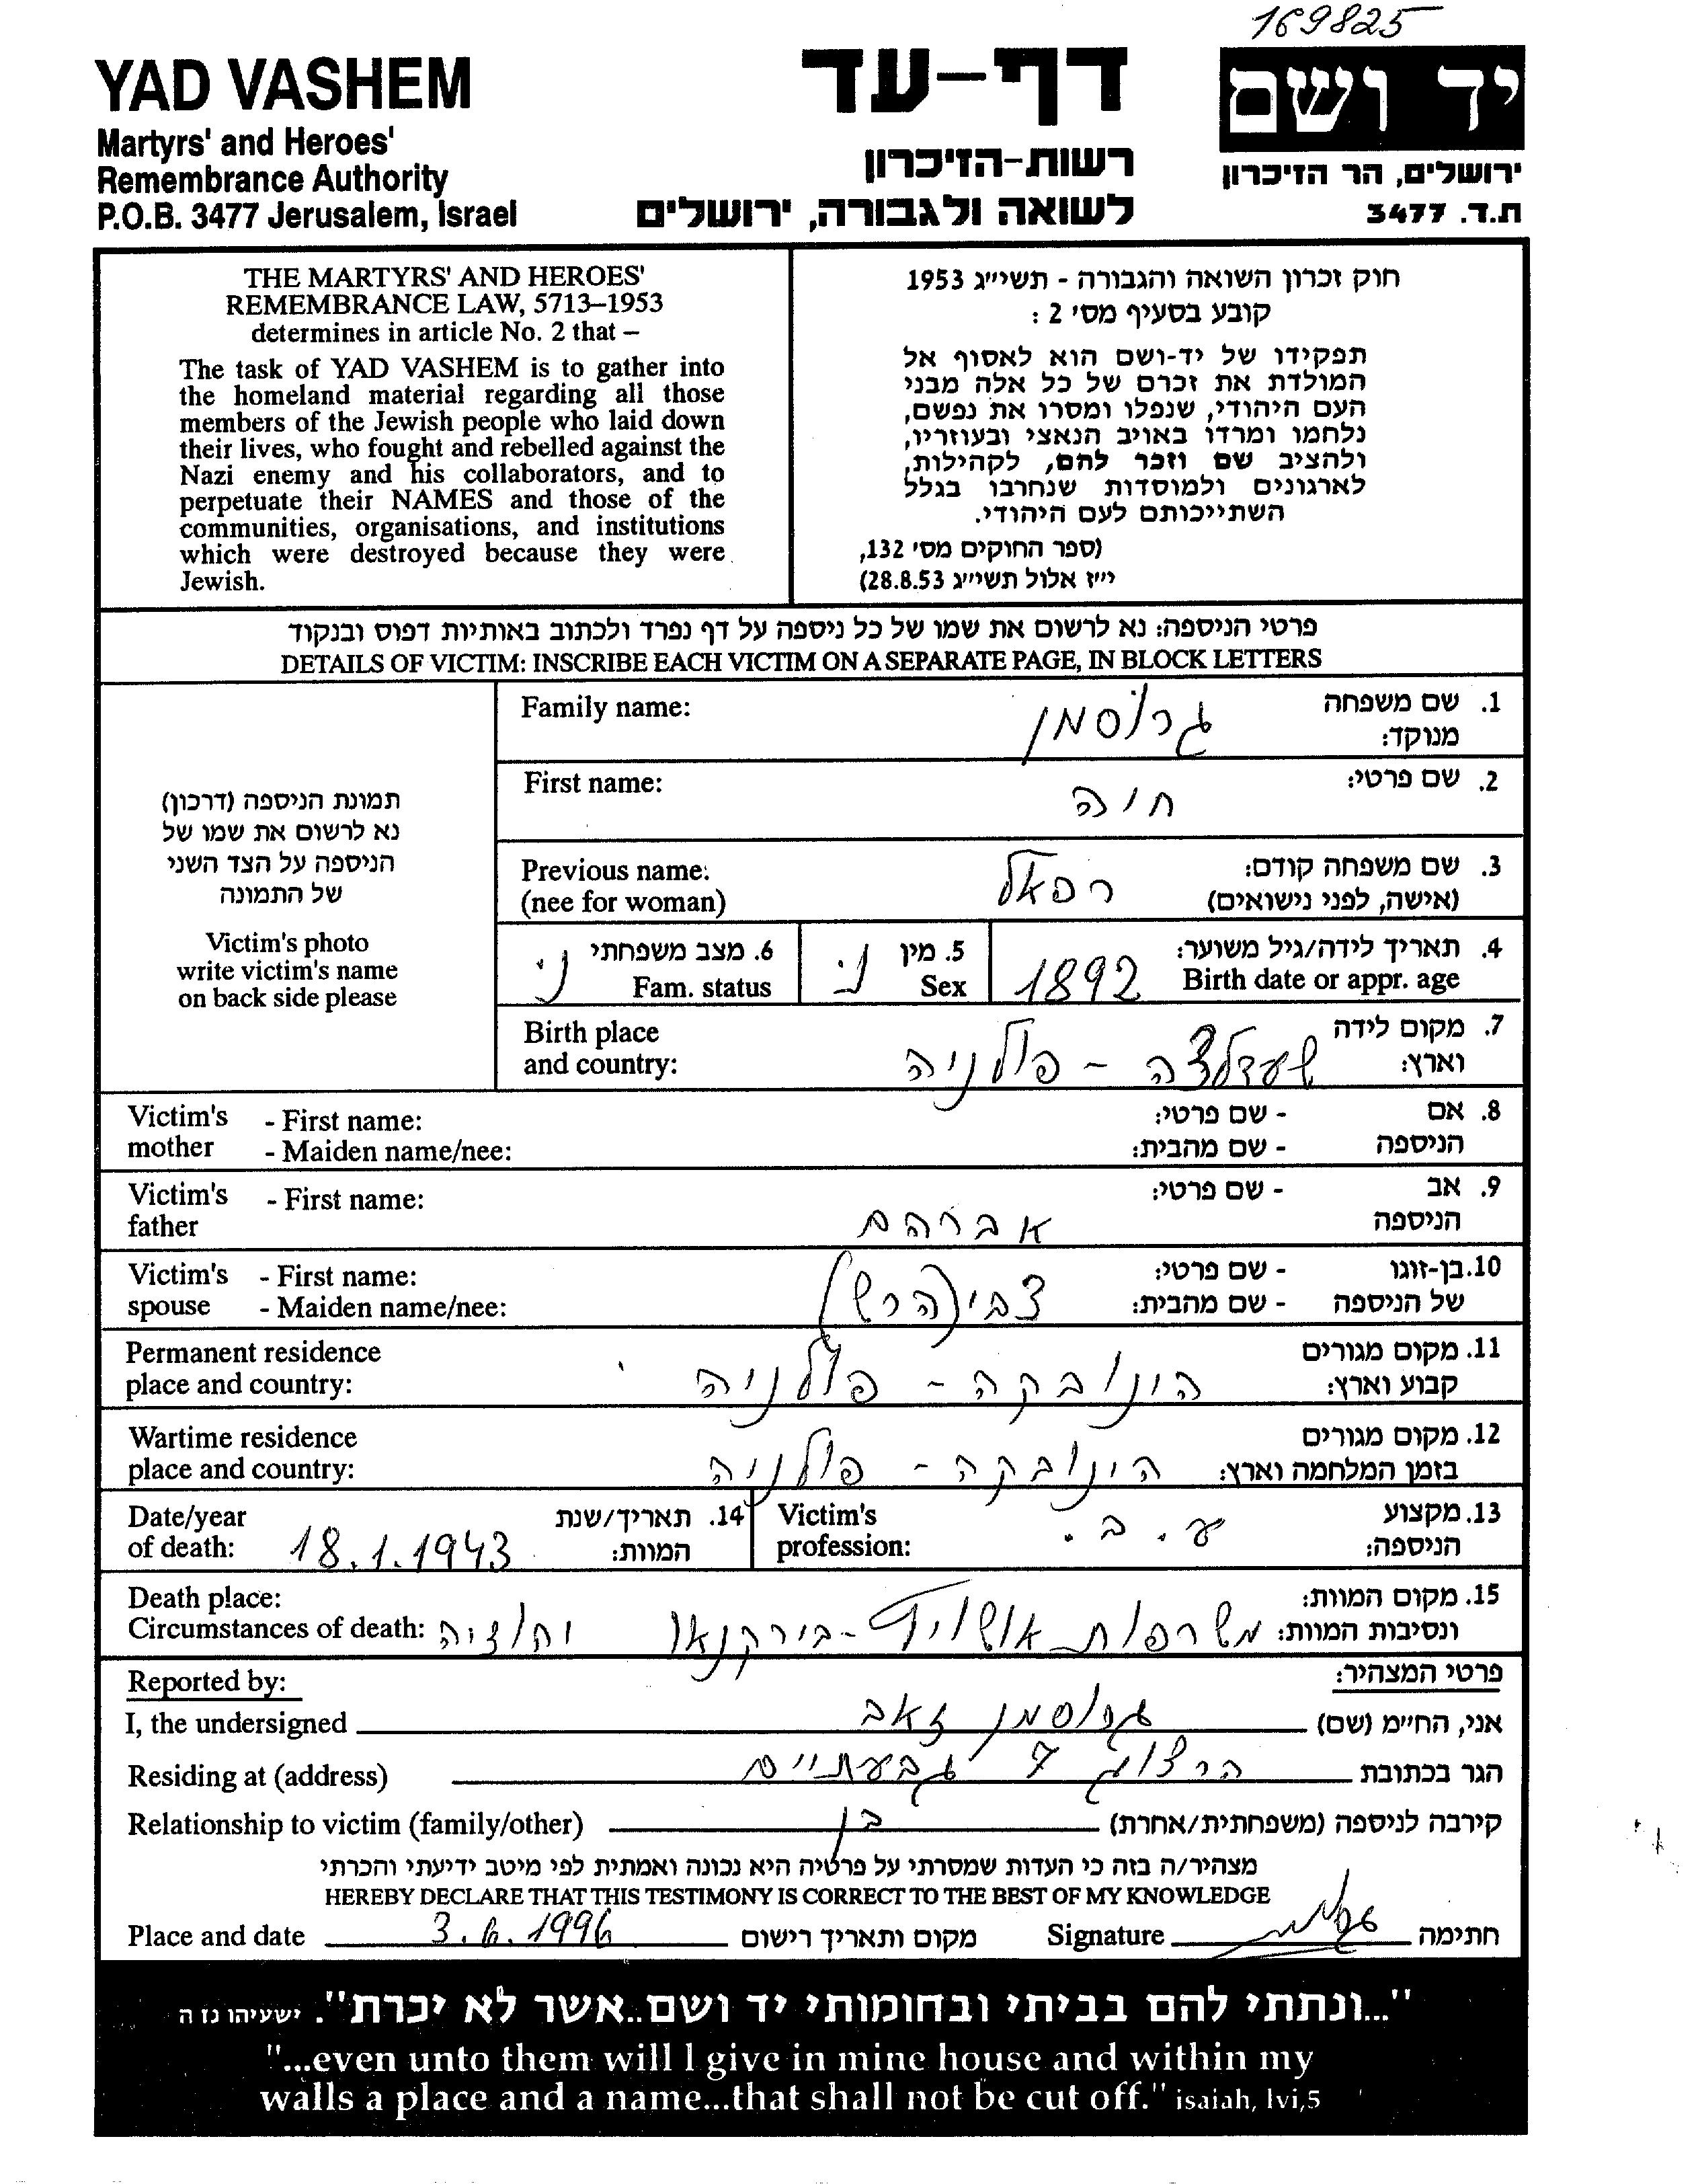 169825
YAD VASHEM
Martyrs' and Heroes'
Remembrance Authority
P.O.B. 3477 Jerusalem, Israel
דף-עד
רשות-הזיכרון
לשואה ולגבורה, ירושלים
יד ושם
ירושלים, הר הזיכרון
ת.ד. 3477
THE MARTYRS' AND HEROES'
REMEMBRANCE LAW, 5713–1953
determines in article No. 2 that –
The task of YAD VASHEM is to gather into
the homeland material regarding all those
members of the Jewish people who laid down
their lives, who fought and rebelled against the
Nazi enemy and his collaborators, and to
perpetuate their NAMES and those of the
communities, organisations, and institutions
which were destroyed because they were
Jewish.
חוק זכרון השואה והגבורה - תשי״ג 1953
קובע בסעיף מס׳ 2 :
תפקידו של יד-ושם הוא לאסוף אל
המולדת את זכרם של כל אלה מבני
העם היהודי, שנפלו ומסרו את נפשם,
נלחמו ומרדו באויב הנאצי ובעוזריו,
ולהציב שם וזכר להם, לקהילות,
לארגונים ולמוסדות שנחרבו בגלל
השתייכותם לעם היהודי.
(ספר החוקים מס׳ 132,
י״ז אלול תשי״ג 28.8.53)
פרטי הניספה: נא לרשום את שמו של כל ניספה על דף נפרד ולכתוב באותיות דפוס ובנקוד
DETAILS OF VICTIM: INSCRIBE EACH VICTIM ON A SEPARATE PAGE, IN BLOCK LETTERS
תמונת הניספה (דרכון)
נא לרשום את שמו של
הניספה על הצד השני
של התמונה
Victim's photo
write victim's name
on back side please
Family name: גרוסמן 1. שם משפחה
מנוקד:
First name: חיה 2. שם פרטי:
Previous name: רפאל 3. שם משפחה קודם:
(nee for woman) (אישה, לפני נישואים)
4. תאריך לידה/גיל משוער: 1892
Birth date or appr. age
5. מין נ.
Sex
6. מצב משפחתי נ.
Fam. status
Birth place 7. מקום לידה
and country: פולניה - וארץ:
Victim's - First name: - שם פרטי: 8. אם
mother - Maiden name/nee: - שם מהבית: הניספה
Victim's - First name: - שם פרטי: 9. אב
father אברהם הניספה
Victim's - First name: - שם פרטי: 10. בן-זוגו
spouse - Maiden name/nee: צבי (הרש) - שם מהבית: של הניספה
Permanent residence 11. מקום מגורים
place and country: הינובקה - פולניה קבוע וארץ:
Wartime residence 12. מקום מגורים
place and country: הינובקה - פולניה בזמן המלחמה וארץ:
Victim's 13. מקצוע
profession: ע. ב. הניספה:
Date/year 14. תאריך/שנת
of death: 18.1.1943 המוות:
Death place: 15. מקום המוות:
Circumstances of death: משרפות אושויץ-בירקנאו ונסיבות המוות:
Reported by: פרטי המצהיר:
I, the undersigned גרוסמן זאב אני, החי״מ (שם)
Residing at (address) הרצוג 7 גבעתיים הגר בכתובת
Relationship to victim (family/other) בן קירבה לניספה (משפחתית/אחרת)
מצהיר/ה בזה כי העדות שמסרתי על פרטיה היא נכונה ואמתית לפי מיטב ידיעתי והכרתי
HEREBY DECLARE THAT THIS TESTIMONY IS CORRECT TO THE BEST OF MY KNOWLEDGE
Place and date 3.6.1996 מקום ותאריך רישום Signature חתימה
"...ונתתי להם בביתי ובחומותי יד ושם..אשר לא יכרת". ישעיהו נו ה
"...even unto them will I give in mine house and within my
walls a place and a name...that shall not be cut off." isaiah, lvi,5